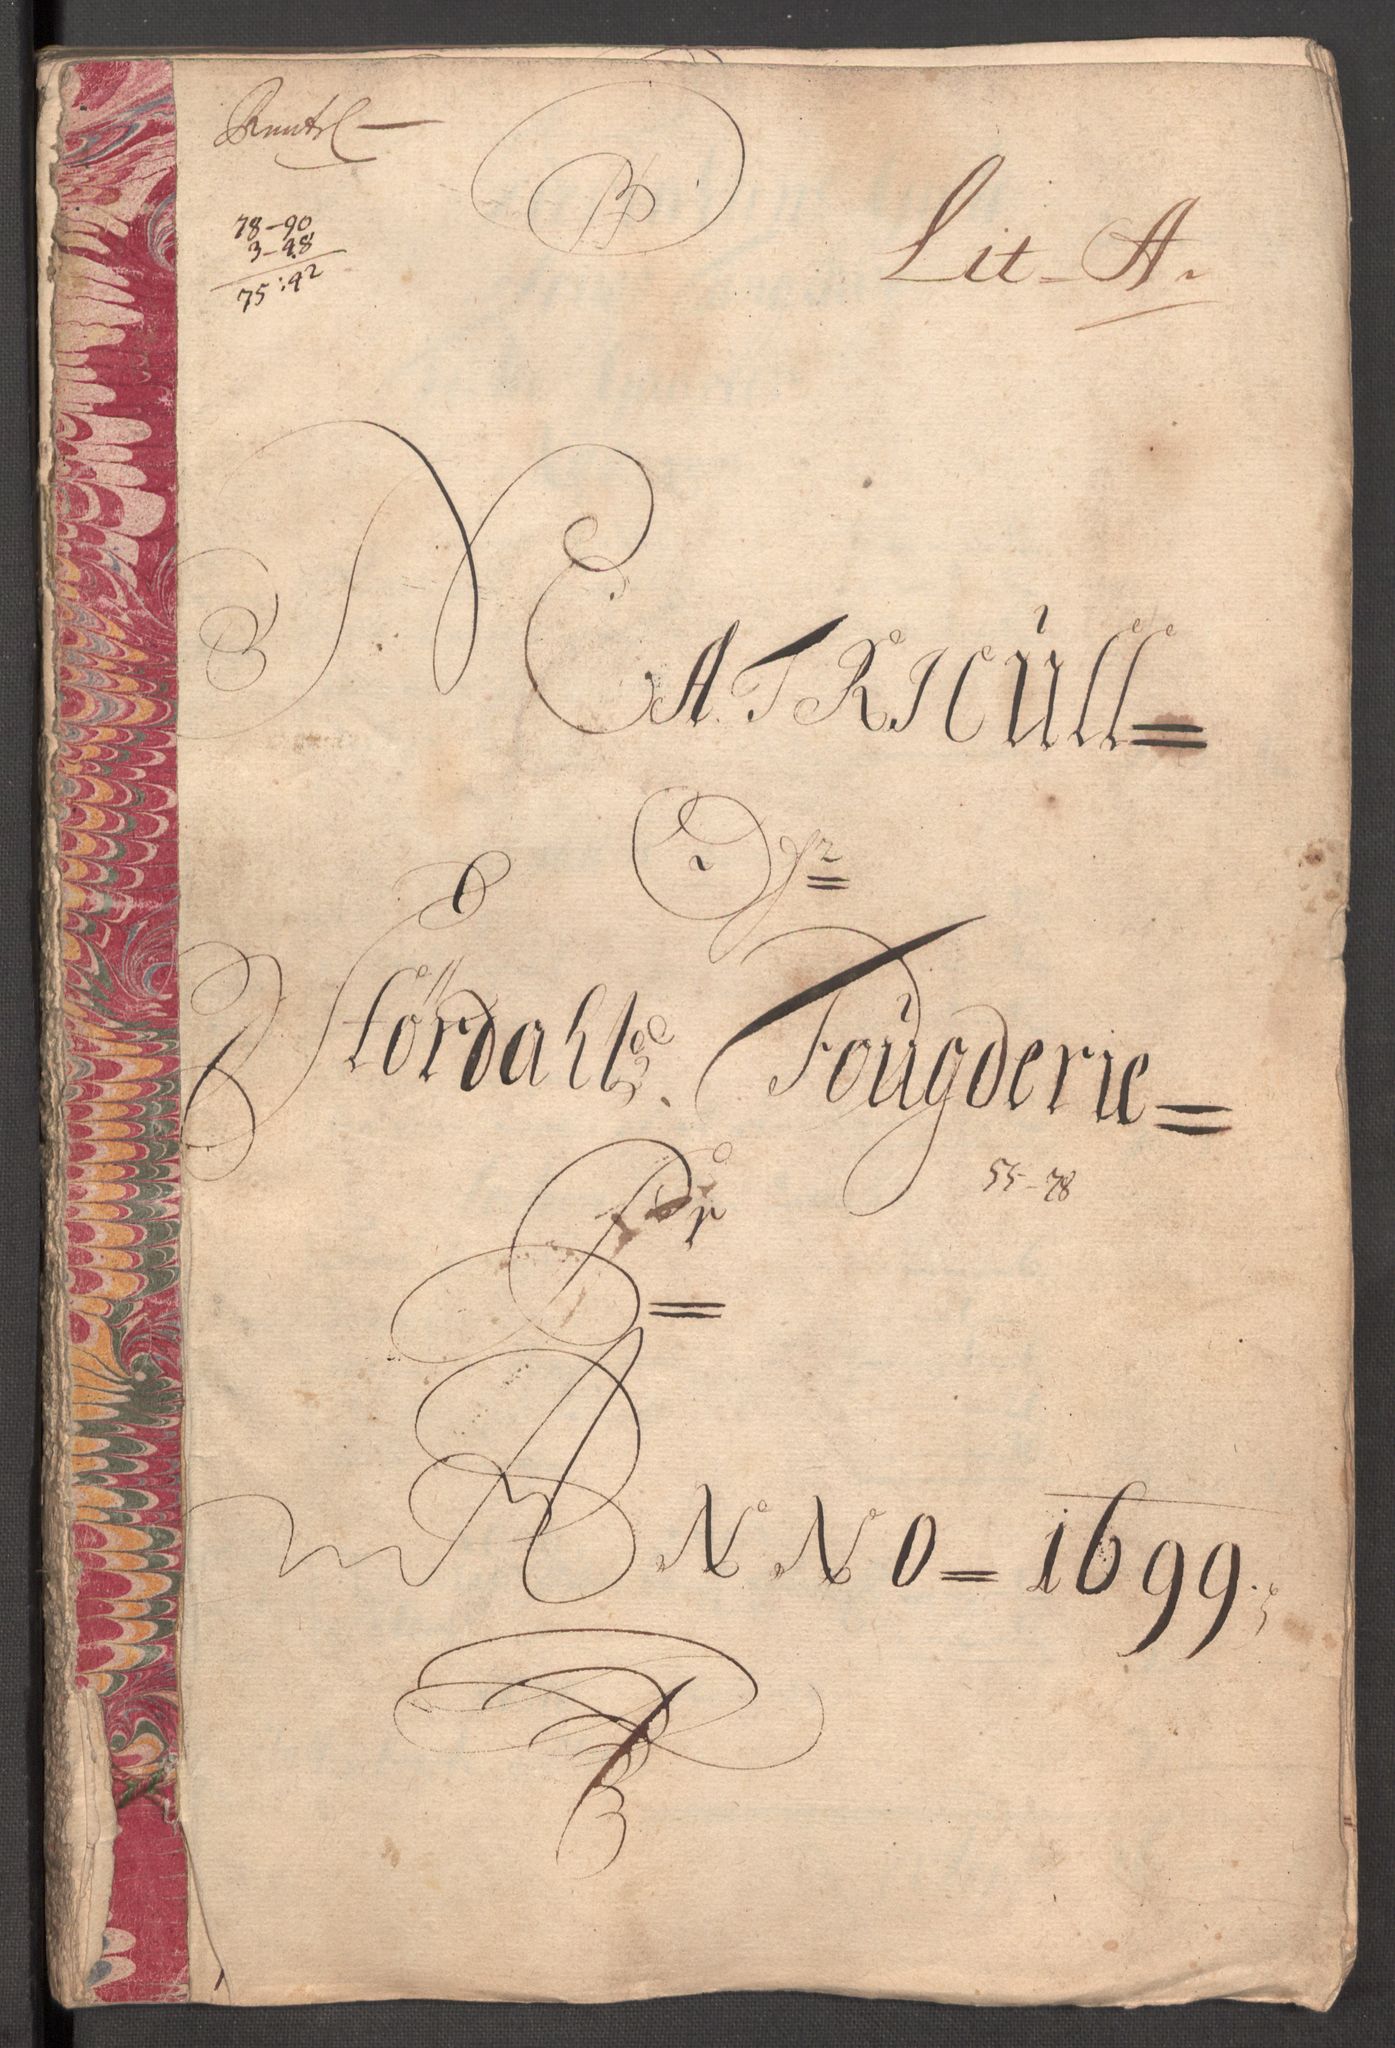 Lit A
78-90
3-48
75:42
MATRICULL
Ofr
Størdahls Fougderie
55-78
For
ANNO 1699